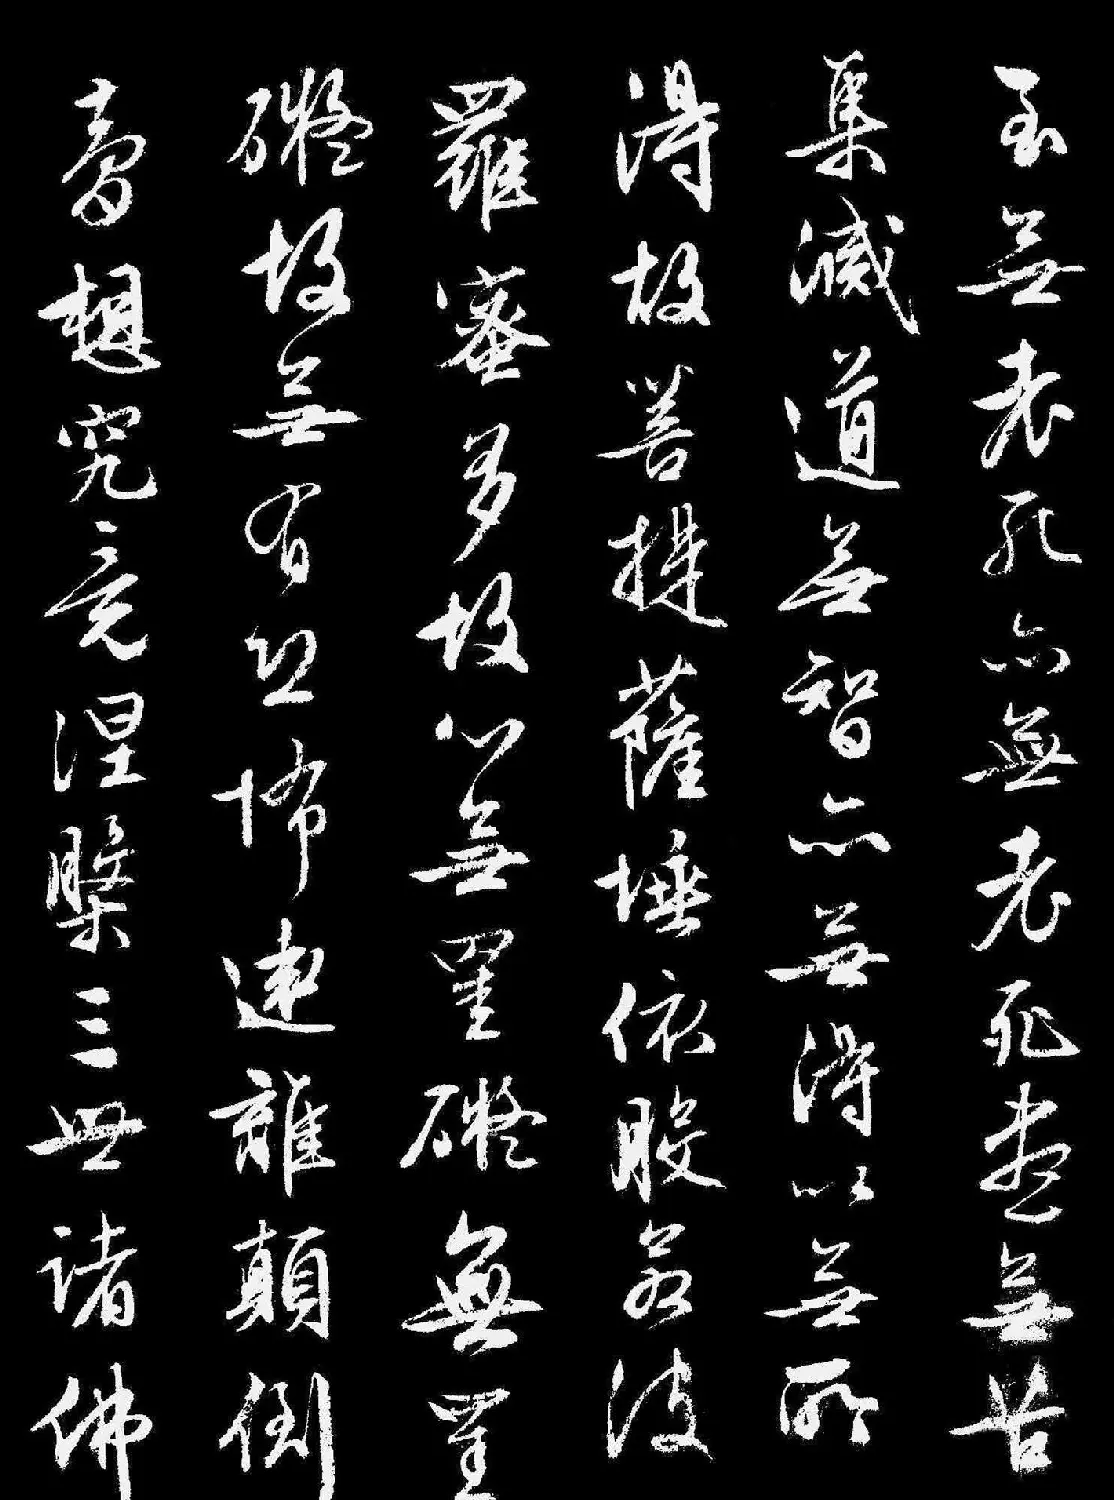 至無老死亦無老死盡無苦
集滅道無智亦無得以無所
得故菩提薩埵依般若波
羅蜜多故心無罣礙無罣
礙故無有恐怖遠離顛倒
夢想究竟涅槃三世諸佛